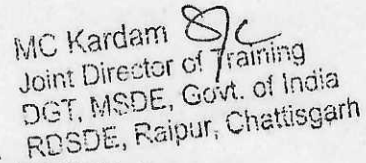 MC Kardam
Joint Director of Training
DGT, MSDE, Govt. of India
RDSDE, Raipur, Chattisgarh